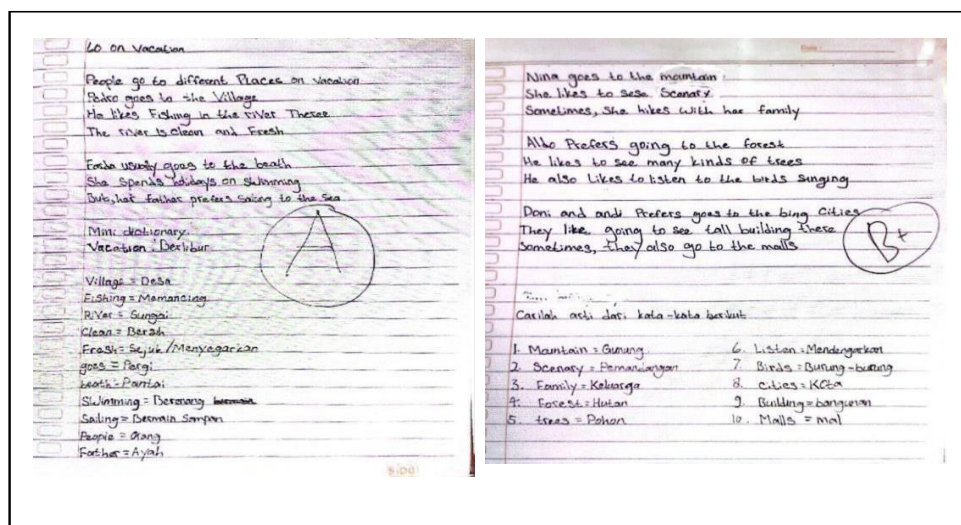 Go on Vacation
People go to different Places on Vacation
Pedro goes to the Village
He likes Fishing in the river Theree
The river is clean and Fresh
Farda usually goes to the beath
She Spends holidays on Swimming
But, her father prefers Sailng to the Sea
Mini dictionary
Vacation : Berlibur
Village = Desa
Fishing = Memancing
River = Sungai
Clean = Bersih
Fresh = Sejuk / Menyegarkan
goes = Pergi
beath = Pantai
Swimming = Berenang
Sailing = Bermain Sampan
People = Orang
Father = Ayah
A
SIDU
Nina goes to the mountain
She likes to sese Scenary
Sometimes, She hikes with her family
Aldo Prefers going to the forest
He likes to see many kinds of trees
He also Likes to listen to the birds singing
Doni and andi Prefers goes to the bing Cities
They like going to see tall building there
Sometimes, they also go to the malls
B+
Carilah arti dari kata-kata berikut
1. Mountain = Gunung
2. Scenary = Pemandangan
3. Family = Keluarga
4. Forest = Hutan
5. trees = Pohon
6. Listen = Mendengarkan
7. Birds = Burung-burung
8. Cities = Kota
9. Building = bangunan
10. Malls = mal